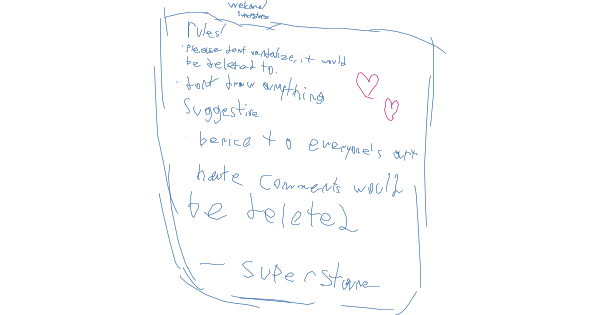 welcome!
rules!
· please dont vandalize, it would
be deleted to.
· dont draw anything
suggestive
· be nice to everyone's art
hate comments would
be deleted
— superstar